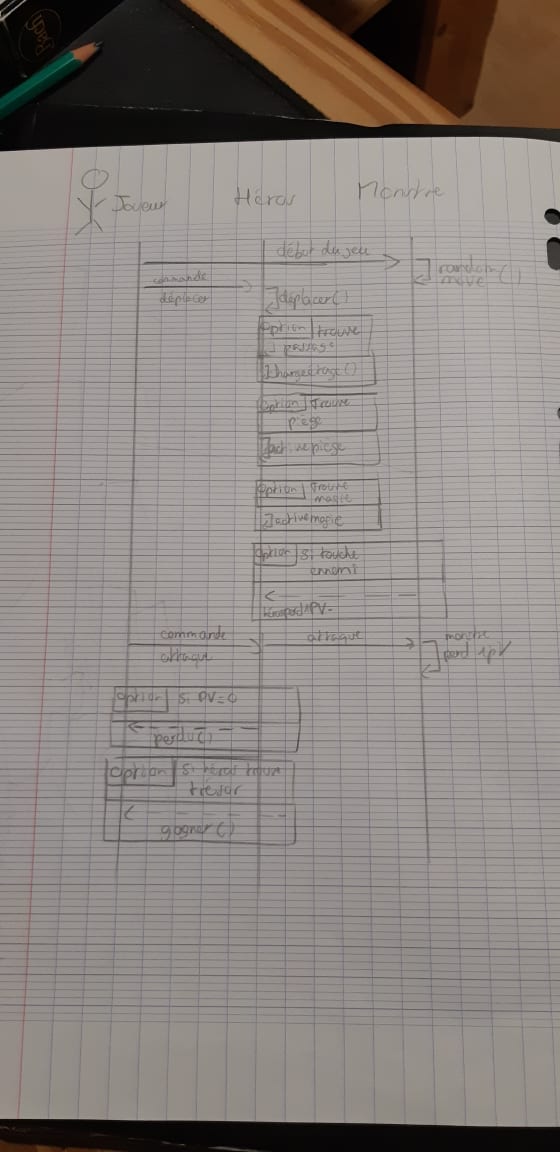 Bach
Joueur Héros Monstre
début du jeu
random
move()
commande
déplacer
déplacer()
Option trouve
passage
changeétage()
Option Trouve
piège
activepiège
Option Trouve
magie
activemagie
Option Si touche
ennemi
hérosperd1PV-
commande
attaque
attaque
monstre
perd 1pv
Option Si PV=0
perdu()
Option Si héros trouve
trésor
gagner()